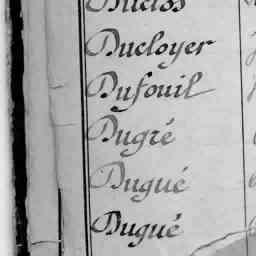 Duclos
Ducloyer
Dufouil
Dugré
Dugué
Dugué